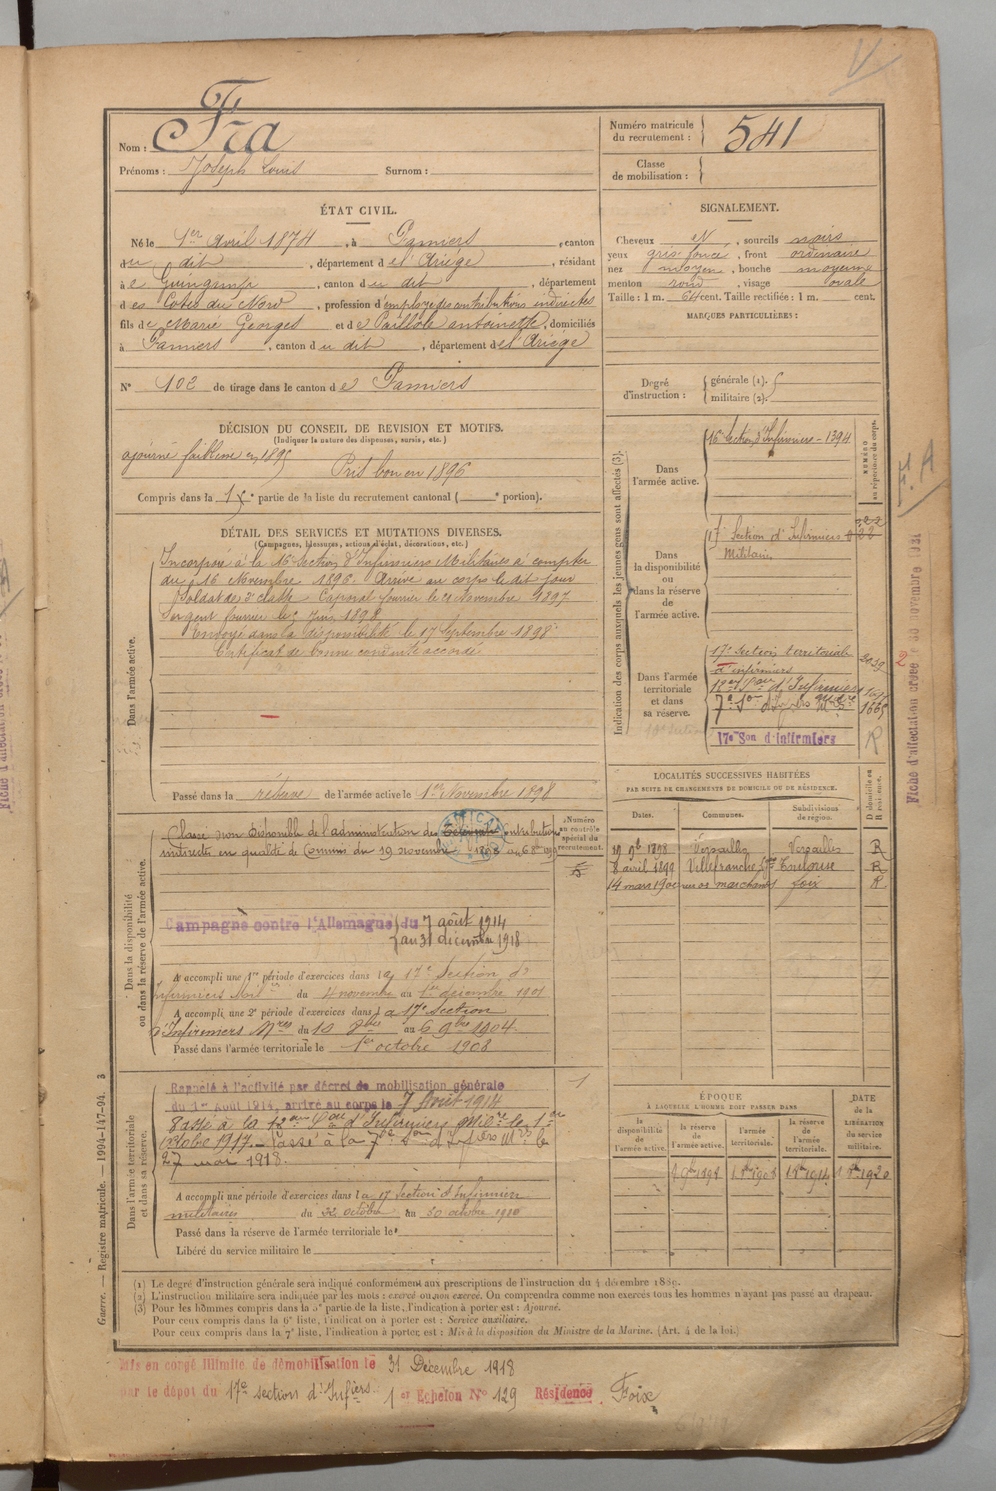 Nom : Fra
Prénoms : Joseph Louis Surnom :
Numéro matricule du recrutement : 541
Classe de mobilisation :
ÉTAT CIVIL.
Né le 1er Avril 1874, à Pamiers, canton
du dit, département de l'Ariége, résidant
à Guingamp, canton du dit, département
des Cotes du Nord, profession d'employé des contributions indirectes
fils de Marie Georges et de Paillole antoinette, domiciliés
à Pamiers, canton du dit, département de l'Ariége
N° 102 de tirage dans le canton de Pamiers
SIGNALEMENT.
Cheveux N, sourcils noirs
yeux gris foncé, front ordinaire
nez moyen, bouche moyenne
menton rond, visage ovale
Taille : 1 m. 64 cent. Taille rectifiée : 1 m. cent.
MARQUES PARTICULIÈRES :
Degré d'instruction : générale (1).
militaire (2).
DÉCISION DU CONSEIL DE REVISION ET MOTIFS.
(Indiquer la nature des dispenses, sursis, etc.)
ajourné faiblesse en 1895
Pris bon en 1896
Compris dans la 1re partie de la liste du recrutement cantonal ( e portion).
DÉTAIL DES SERVICES ET MUTATIONS DIVERSES.
(Campagnes, blessures, actions d'éclat, décorations, etc.)
Dans l'armée active.
Incorporé à la 16e Section d'Infirmiers Militaires à compter
du 16 Novembre 1896. Arrivé au corps le dit jour
Soldat de 2e classe Caporal fourrier le 21 Novembre 1897
Sergent fourrier le Juin 1898
Envoyé dans la disponibilité le 17 Septembre 1898
Certificat de bonne conduite accordé
Passé dans la réserve de l'armée active le 1er Novembre 1898
Indication des corps auxquels les jeunes gens sont affectés (3).
NUMÉRO au répertoire du corps.
Dans l'armée active.
16e Section d'Infirmiers - 1394
Dans la disponibilité ou dans la réserve de l'armée active.
17e Section d'Infirmiers
Militaires
Dans l'armée territoriale et dans sa réserve.
17e Section territoriale
d'infirmiers
7e Son d'Infiers
1665
17e Son d'Infirmiers R
LOCALITÉS SUCCESSIVES HABITÉES
PAR SUITE DE CHANGEMENTS DE DOMICILE OU DE RÉSIDENCE.
Dates. Communes. Subdivisions de région. D domicile ou R résidence.
19 9bre 1898 Versailles Versailles R
8 avril 1899 Villefranche Toulouse R
14 mars 1900 foix R
Dans la disponibilité ou dans la réserve de l'armée active.
Numéro au contrôle spécial du recrutement.
Classé non disponible de l'administration des contributions
indirectes en qualité de Commis du 19 novembre 1898
Campagne contre l'Allemagne du 7 août 1914
au 31 décembre 1918
A accompli une 1re période d'exercices dans la 17e Section d'
Infirmiers du 4 novembre au 1er décembre 1901
A accompli une 2e période d'exercices dans la 17e Section
d'Infirmiers Mres du 10 8bre au 6 9bre 1904.
Passé dans l'armée territoriale le 1er octobre 1908
Dans l'armée territoriale et dans sa réserve.
Rappelé à l'activité par décret de mobilisation générale
du 1er Août 1914, arrivé au corps le 7 Août 1914
Passé à la d'Infirmiers Milres le 1er
octobre 1917. Passé à la 7e Son d'Infiers Mres le
27 mai 1918.
A accompli une période d'exercices dans la 17 Section d'Infirmiers
militaires du 22 octobre au 30 octobre 1910
Passé dans la réserve de l'armée territoriale le
Libéré du service militaire le
ÉPOQUE
À LAQUELLE L'HOMME DOIT PASSER DANS
la disponibilité de l'armée active. la réserve de l'armée active. l'armée territoriale. la réserve de l'armée territoriale.
DATE de la LIBÉRATION du service militaire.
(1) Le degré d'instruction générale sera indiqué conformément aux prescriptions de l'instruction du 4 décembre 1889.
(2) L'instruction militaire sera indiquée par les mots : exercé ou non exercé. On comprendra comme non exercés tous les hommes n'ayant pas passé au drapeau.
(3) Pour les hommes compris dans la 5e partie de la liste, l'indication à porter est : Ajourné.
Pour ceux compris dans la 6e liste, l'indication à porter est : Service auxiliaire.
Pour ceux compris dans la 7e liste, l'indication à porter est : Mis à la disposition du Ministre de la Marine. (Art. 4 de la loi.)
Guerre. — Registre matricule. — 1994-147-94. 3
Mis en congé illimité de démobilisation le 31 Décembre 1918
par le dépôt du 17e section d'Infiers 1er Échelon N° 129 Résidence Foix
F. A
Fiche d'affectation créée le 30 novembre 1931